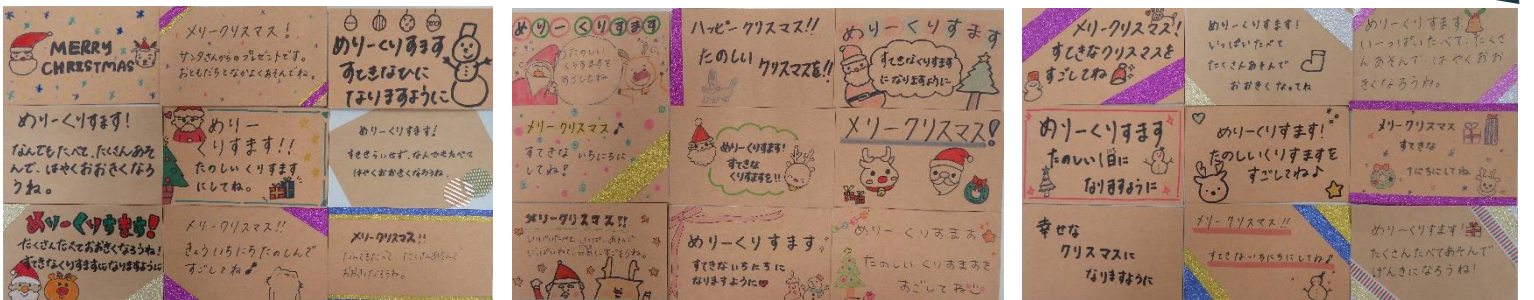 MERRY
CHRISTMAS
メリークリスマス!
サンタさんからのプレゼントです。
おともだちとなかよくあそんでね。
めりーくりすます
すてきなひに
なりますように
めりーくりすます!
なんでもたべて、たくさんあそ
んで、はやくおおきくなろ
うね。
めりー
くりすます!!
たのしいくりすます
にしてね。
めりーくりすます!
すききらいせず、なんでもたべて
はやくおおきくなろうね。
めりーくりすます!
たくさんたべておおきくなろうね!
すてきなくりすますになりますように
メリークリスマス!!
きょういちにちたのしんで
すごしてね♪
メリークリスマス!!
おおきくなろうね。
めりーくりすます
たのしい
くりすますを
すごしてね
ハッピークリスマス!!
たのしい クリスマスを!!
めりーくりすます
すてきなくりすます
になりますように
メリークリスマス♪
すてきな いちにちに
してね!
めりーくりすます!
すてきな
くりすますを!!
メリークリスマス!
メリークリスマス!!
めりーくりすます
すてきないちにちに
なりますように♥
めりーくりすます
たのしい くりすますを
すごしてね
メリークリスマス!
すてきなクリスマスを
すごしてね
めりーくりすます!
いっぱいたべて
たくさんあそんで
おおきくなってね
めりーくりすます
いーっぱいたべて、たくさ
んあそんで、はやくおお
きくなろうね。
めりーくりすます
たのしい1日に
なりますように
めりーくりすます!
たのしいくりすますを
すごしてね♪
メリークリスマス
すてきな
1にちにしてね
幸せな
クリスマスに
なりますように
メリークリスマス!!
すてきないちにちにしてね♪
めりーくりすます!
たくさんたべてあそんで
げんきになろうね!